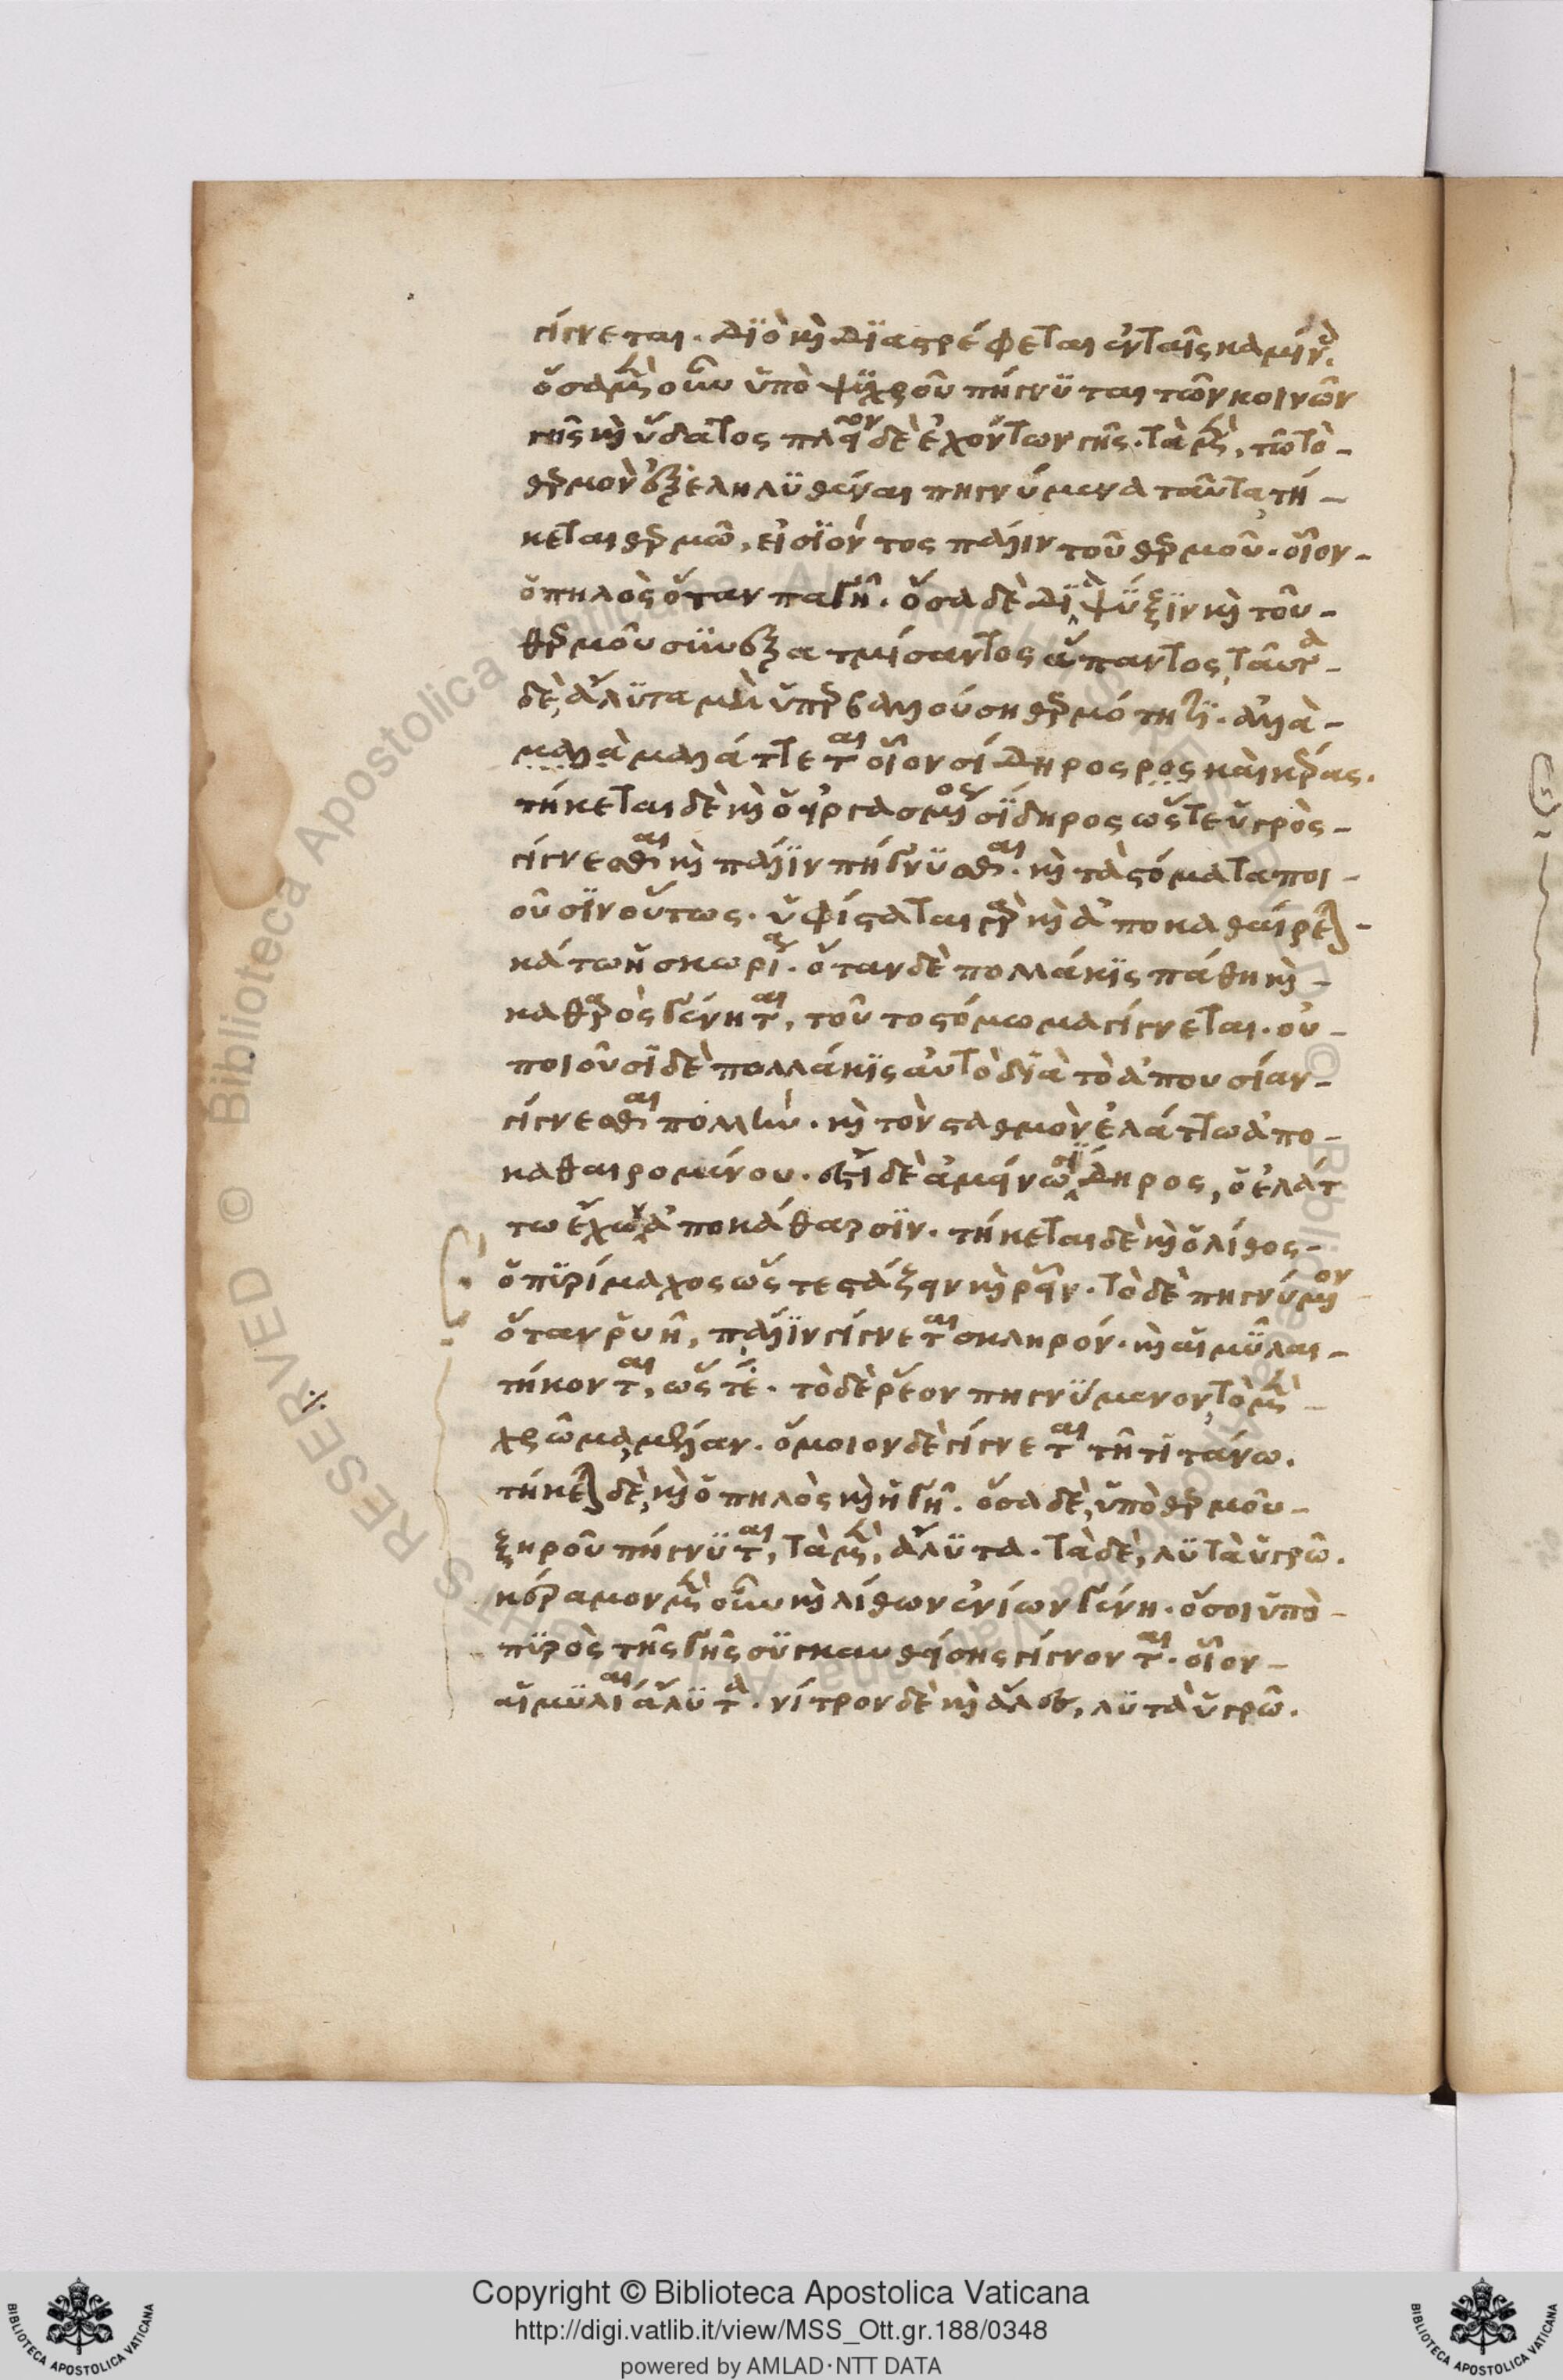 γίγνεται. διὸ καὶ διαστρέφεται ἐν ταῖς καμίν.
ὅσα μὲν οὖν ὑπὸ ψυχροῦ πήγνυται τῶν κοινῶν
γῆς καὶ ὕδατος πλεῖον δὲ ἐχόντων γῆς. τὰ μὲν, τῶ τὸ
θερμὸν ἐξεληλυθέναι πηγνύμενα ταῦτα, τή
κεται θερμῶ, εἰσϊόντος πάλιν τοῦ θερμοῦ. οἷον
ὁ πηλὸς ὅταν παγῆ. ὅσα δὲ διὰ ψύξϊν καὶ τοῦ
θερμοῦ συνεξατμίσαντος ἅπαντος, ταῦτα
δὲ, ἄλυτα μὴ ὑπερβαλλούση θερμότητϊ. ἀλλὰ
μαλλα μαλάττεται οἷον σίδηρος ρος καὶ κέρας.
τήκεται δὲ καὶ ὁ εἰργασμένος σίδηρος ὥστε ὑγρὸς
γίγνεσθαι καὶ πάλιν πήγνυσθαι. καὶ τὰ στόματα ποι
οῦσϊν οὕτως. ὑφίσταται γὰρ καὶ ἀποκαθαίρεται
κάτω ἡ σκωρία. ὅταν δὲ πολλάκϊς πάθη καὶ
καθαρὸς γένηται, τοῦτο στόμωμα γίγνεται. οὐ
ποιοῦσϊ δὲ πολλάκϊς αὐτὸ διὰ τὸ ἀπουσίαν
γίγνεσθαι πολλὴν. καὶ τὸν σταθμὸν ἐλάττω ἀπο
καθαιρομένου. ἐστὶ δὲ ἀμείνω σίδηρος, ὁ ἐλάτ
τω ἔχων ἀποκάθαρσϊν. τήκεται δὲ καὶ ὁ λίθος
ὁ πυρίμαχος ὥστε στάζειν καὶ ρεῖν. τὸ δὲ πηγνύμενον
ὅταν ρυῆ, πάλϊν γίγνεται σκληρόν. καὶ αἱ μύλαι
τήκονται, ὥστε. τὸ δὲ ρέον πηγνύμενον, τὸ μὲν
χρῶμα, μέλαν. ὅμοιον δὲ γίγνεται τῆ τϊτάνω.
τήκεται δὲ, καὶ ὁ πηλὸς καὶ ἡ γῆ. ὅσα δὲ, ὑπὸ θερμοῦ
ξηροῦ πήγνυται, τὰ μὲν, ἄλυτα. τὰ δὲ, λυτὰ ὑγρῶ.
κέραμον μὲν οὖν καὶ λίθων ἐνίων γένη. ὅσοι ὑπὸ
πυρὸς τῆς γῆς συγκαυθείσης γίγνονται. οἷον
αἱ μυλίαι ἄλυτα. νίτρον δὲ καὶ ἅλες, λυτὰ ὑγρῶ.
Copyright © Biblioteca Apostolica Vaticana
http://digi.vatlib.it/view/MSS_Ott.gr.188/0348
powered by AMLAD·NTT DATA